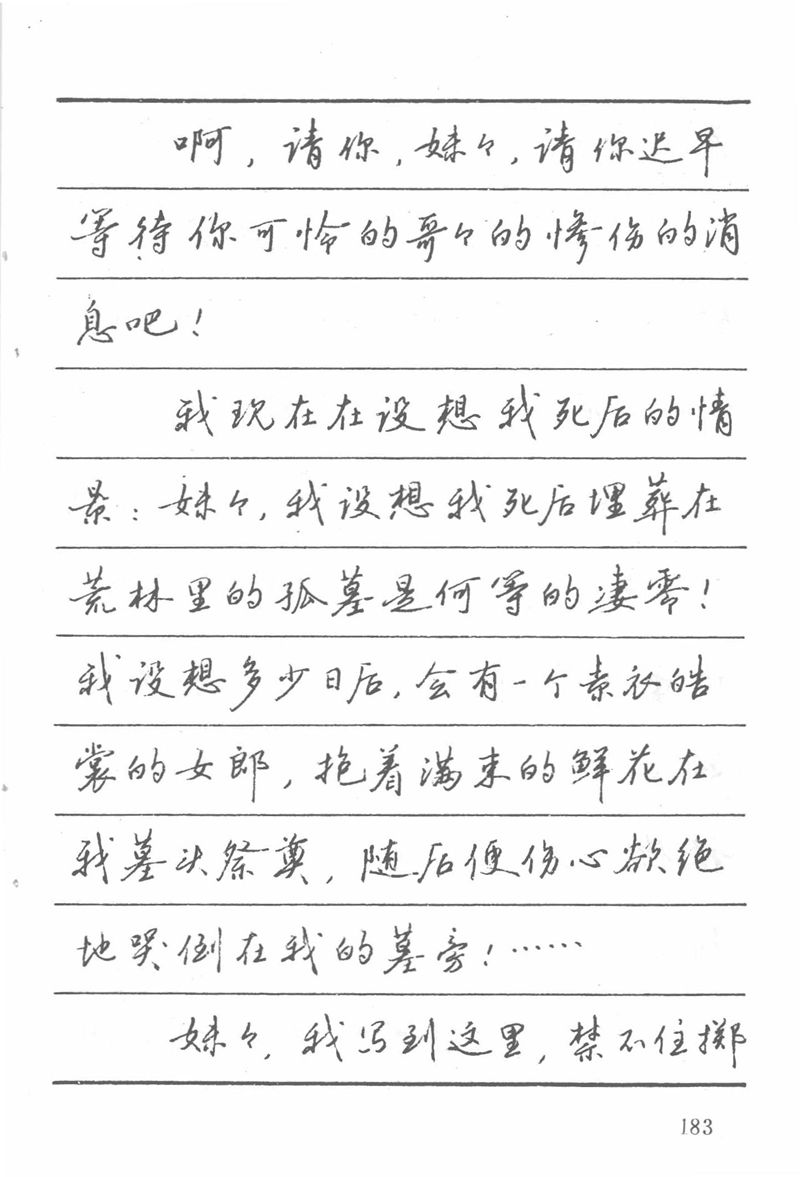 啊，请你，妹々，请你迟早
等待你可怜的哥々的惨伤的消
息吧！
我现在在设想我死后的情
景：妹々，我设想我死后埋葬在
荒林里的孤墓是何等的凄零！
我设想多少日后，会有一个素衣皓
裳的女郎，抱着满束的鲜花在
我墓头祭奠，随后便伤心欲绝
地哭倒在我的墓旁！……
妹々，我写到这里，禁不住掷
183